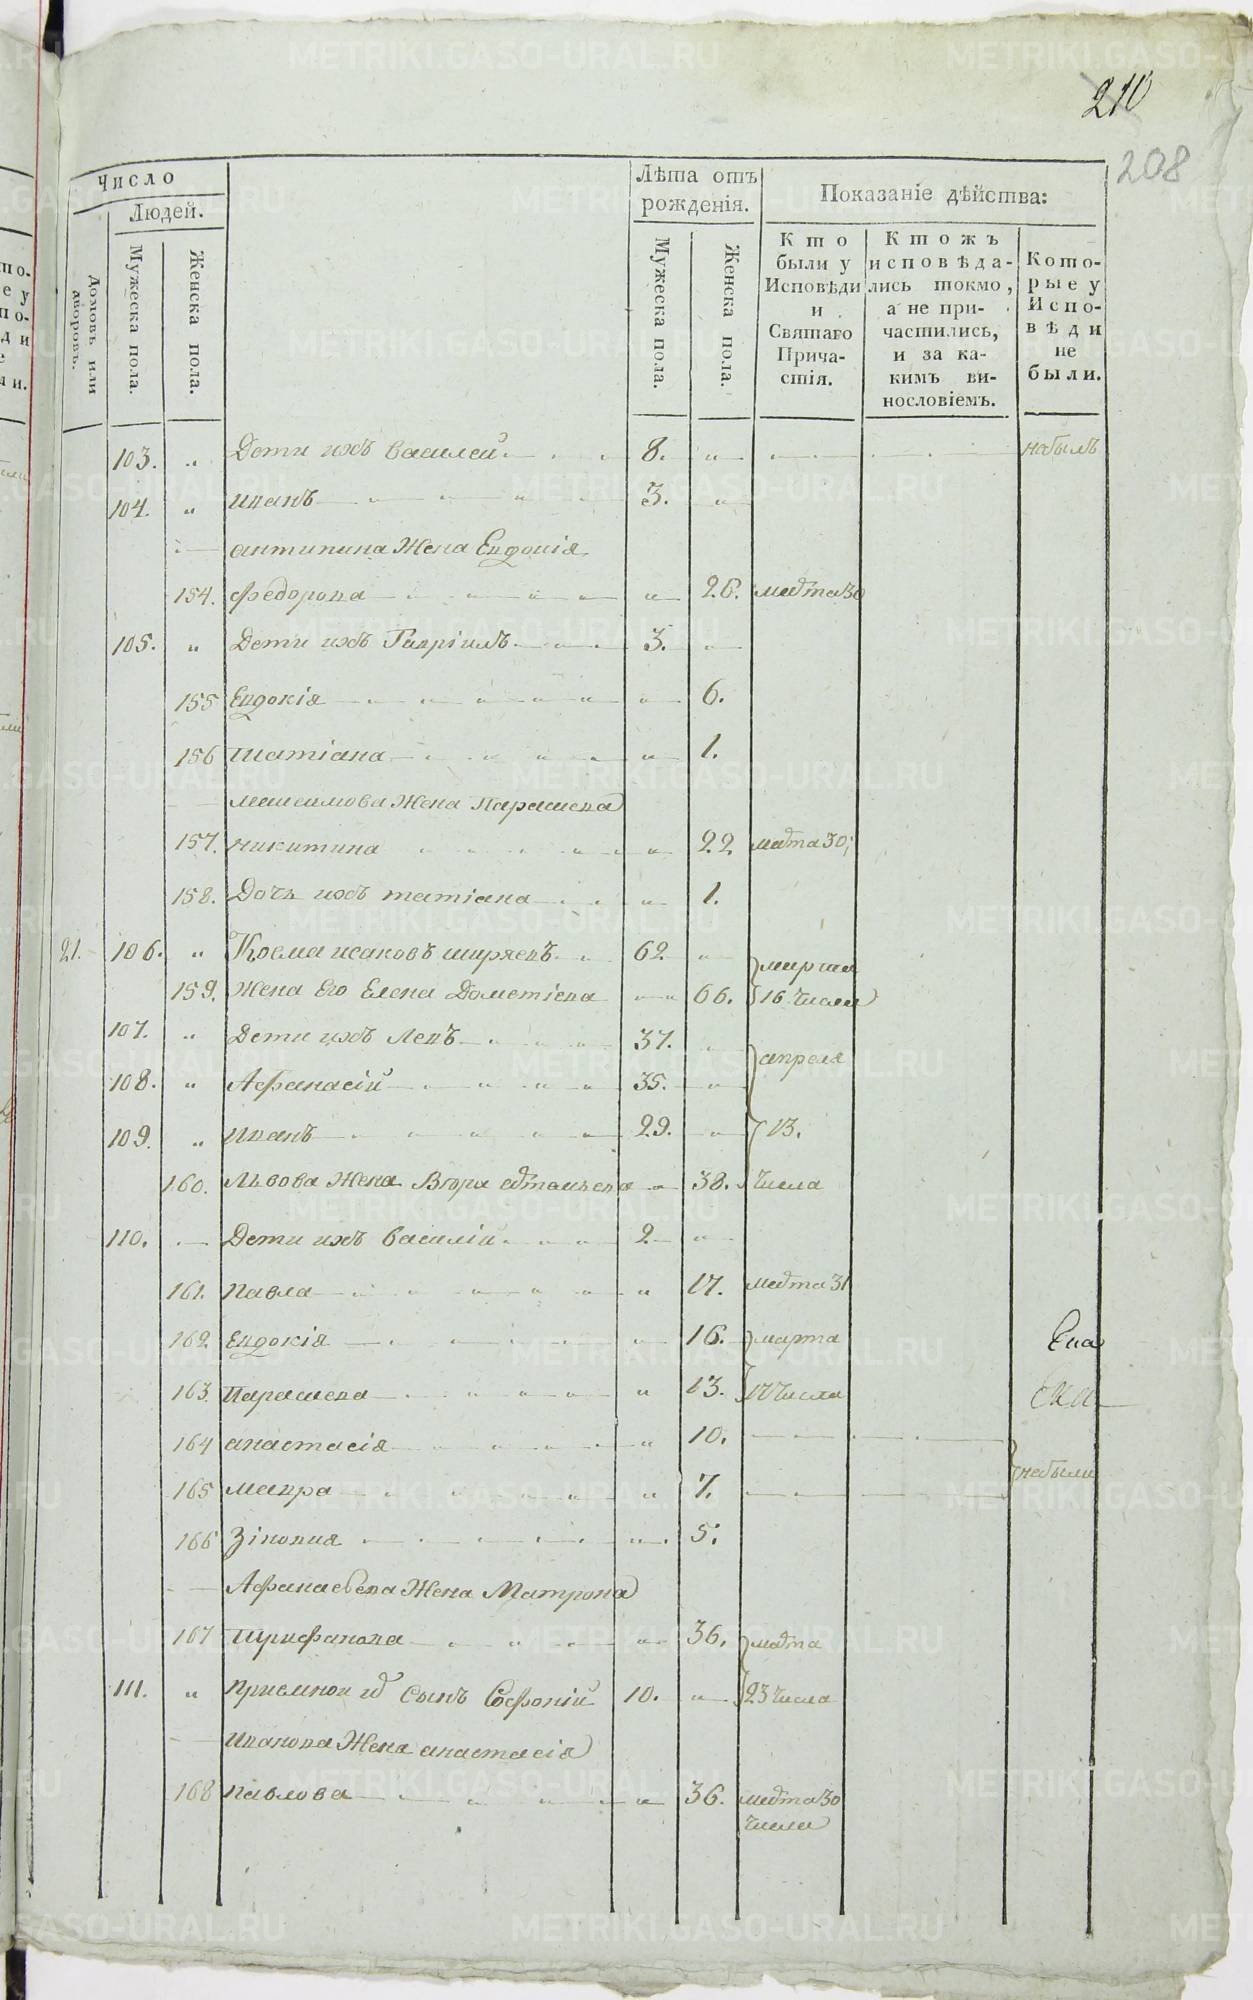 210
208
Число
Людей.
Домовъ или дворовъ.
Мужеска пола.
Женска пола.
Лѣта отъ рожденія.
Мужеска пола.
Женска пола.
Показаніе дѣйства:
Кто были у Исповѣди и Святаго Причастія.
Ктожъ исповѣдались токмо, а не причастились, и за какимъ винословіемъ.
Которые у Исповѣди не были.
103. „ Дети ихъ василей 8. „ небылъ
104. „ иванъ 3. „
антипина Жена Евдокія
154. федорова „ 26. марта 30
105. „ Дети ихъ Гавріилъ 3. „
155 Евдокія „ 6.
156 татіана „ 1.
максимова Жена Параскева
157. никитина „ 22 марта 30;
158. Дочь ихъ татіана „ 1.
21. 106. „ Косма исаковъ ширяевъ 62 „ марта
159. Жена Его Елена Дометіева „ 66. 16 числа
107. „ Дети ихъ Левъ 37. „ апреля
108. „ Афанасій 35. „
109. „ иванъ 29. „ 13.
160. Львова Жена „ 38. числа
110. Дети ихъ василій 2 „
161. павла „ 17. марта 31
162. Евдокія „ 16. марта
163. Параскева „ 13. числа
164 анастасія „ 10. небыли
165 мавра „ 7.
166 Зіновия „ 5.
Афанасьева Жена Матрона
167 трифанова „ 36. марта
111. „ приемной Сынъ Софоній 10. „ 23 числа
Иванова Жена анастасія
168 павлова „ 36. марта 30
числа
METRIKI.GASO-URAL.RU